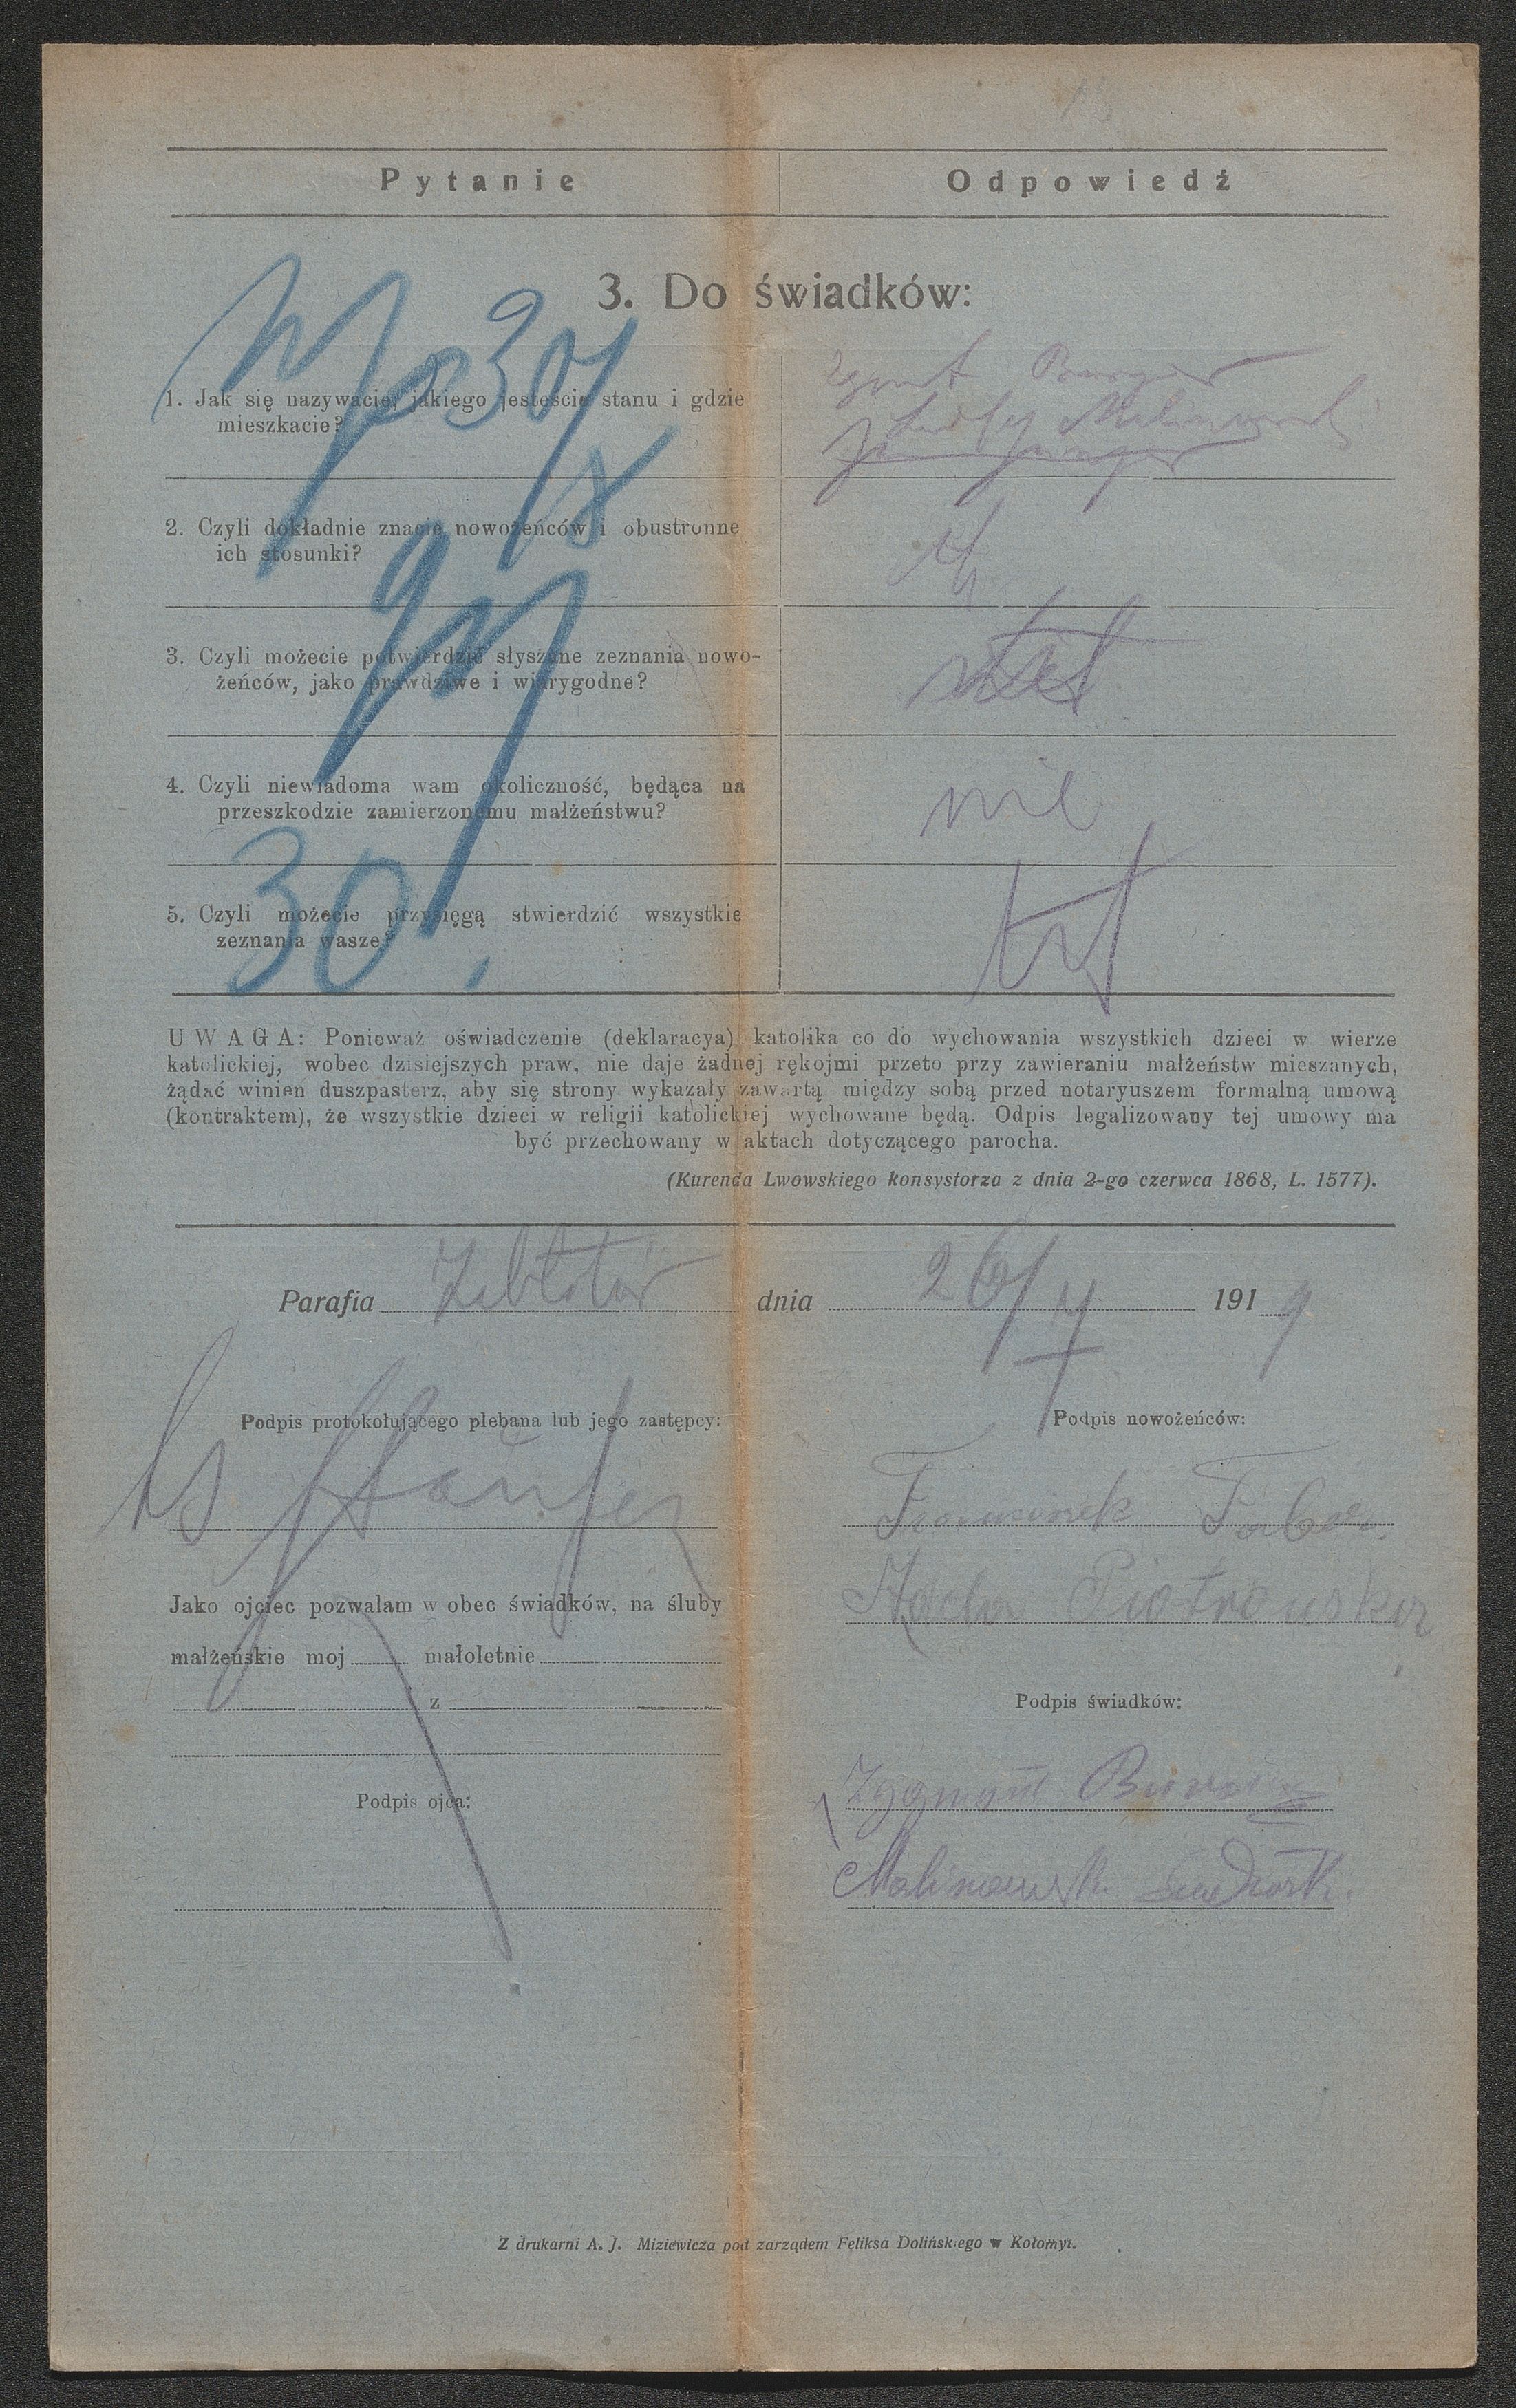 Pytanie
Odpowiedź
3. Do świadków:
1. Jak się nazywacie, jakiego jesteście stanu i gdzie
mieszkacie?
2. Czyli dokładnie znacie nowożeńców i obustronne
ich stosunki?
3. Czyli możecie potwierdzić słyszane zeznania nowo-
żeńców, jako prawdziwe i wiarygodne?
4. Czyli niewiadoma wam okoliczność, będąca na
przeszkodzie zamierzonemu małżeństwu?
nie
5. Czyli możecie przysięgą stwierdzić wszystkie
zeznania wasze?
30
UWAGA: Ponieważ oświadczenie (deklaracya) katolika co do wychowania wszystkich dzieci w wierze
katolickiej, wobec dzisiejszych praw, nie daje żadnej rękojmi przeto przy zawieraniu małżeństw mieszanych,
żądać winien duszpasterz, aby się strony wykazały zawartą między sobą przed notaryuszem formalną umową
(kontraktem), że wszystkie dzieci w religii katolickiej wychowane będą. Odpis legalizowany tej umowy ma
być przechowany w aktach dotyczącego parocha.
(Kurenda Lwowskiego konsystorza z dnia 2-go czerwca 1868, L. 1577).
Parafia Zabłotów dnia 26/4 1919
Podpis protokołującego plebana lub jego zastępcy:
Podpis nowożeńców:
Franciszek Faber
Adela Piotrowska
Jako ojciec pozwalam w obec świadków, na śluby
małżeńskie moj małoletnie
z
Podpis ojca:
Podpis świadków:
Zygmunt
Malinowski
Z drukarni A. J. Miziewicza pod zarządem Feliksa Dolińskiego w Kołomyi.